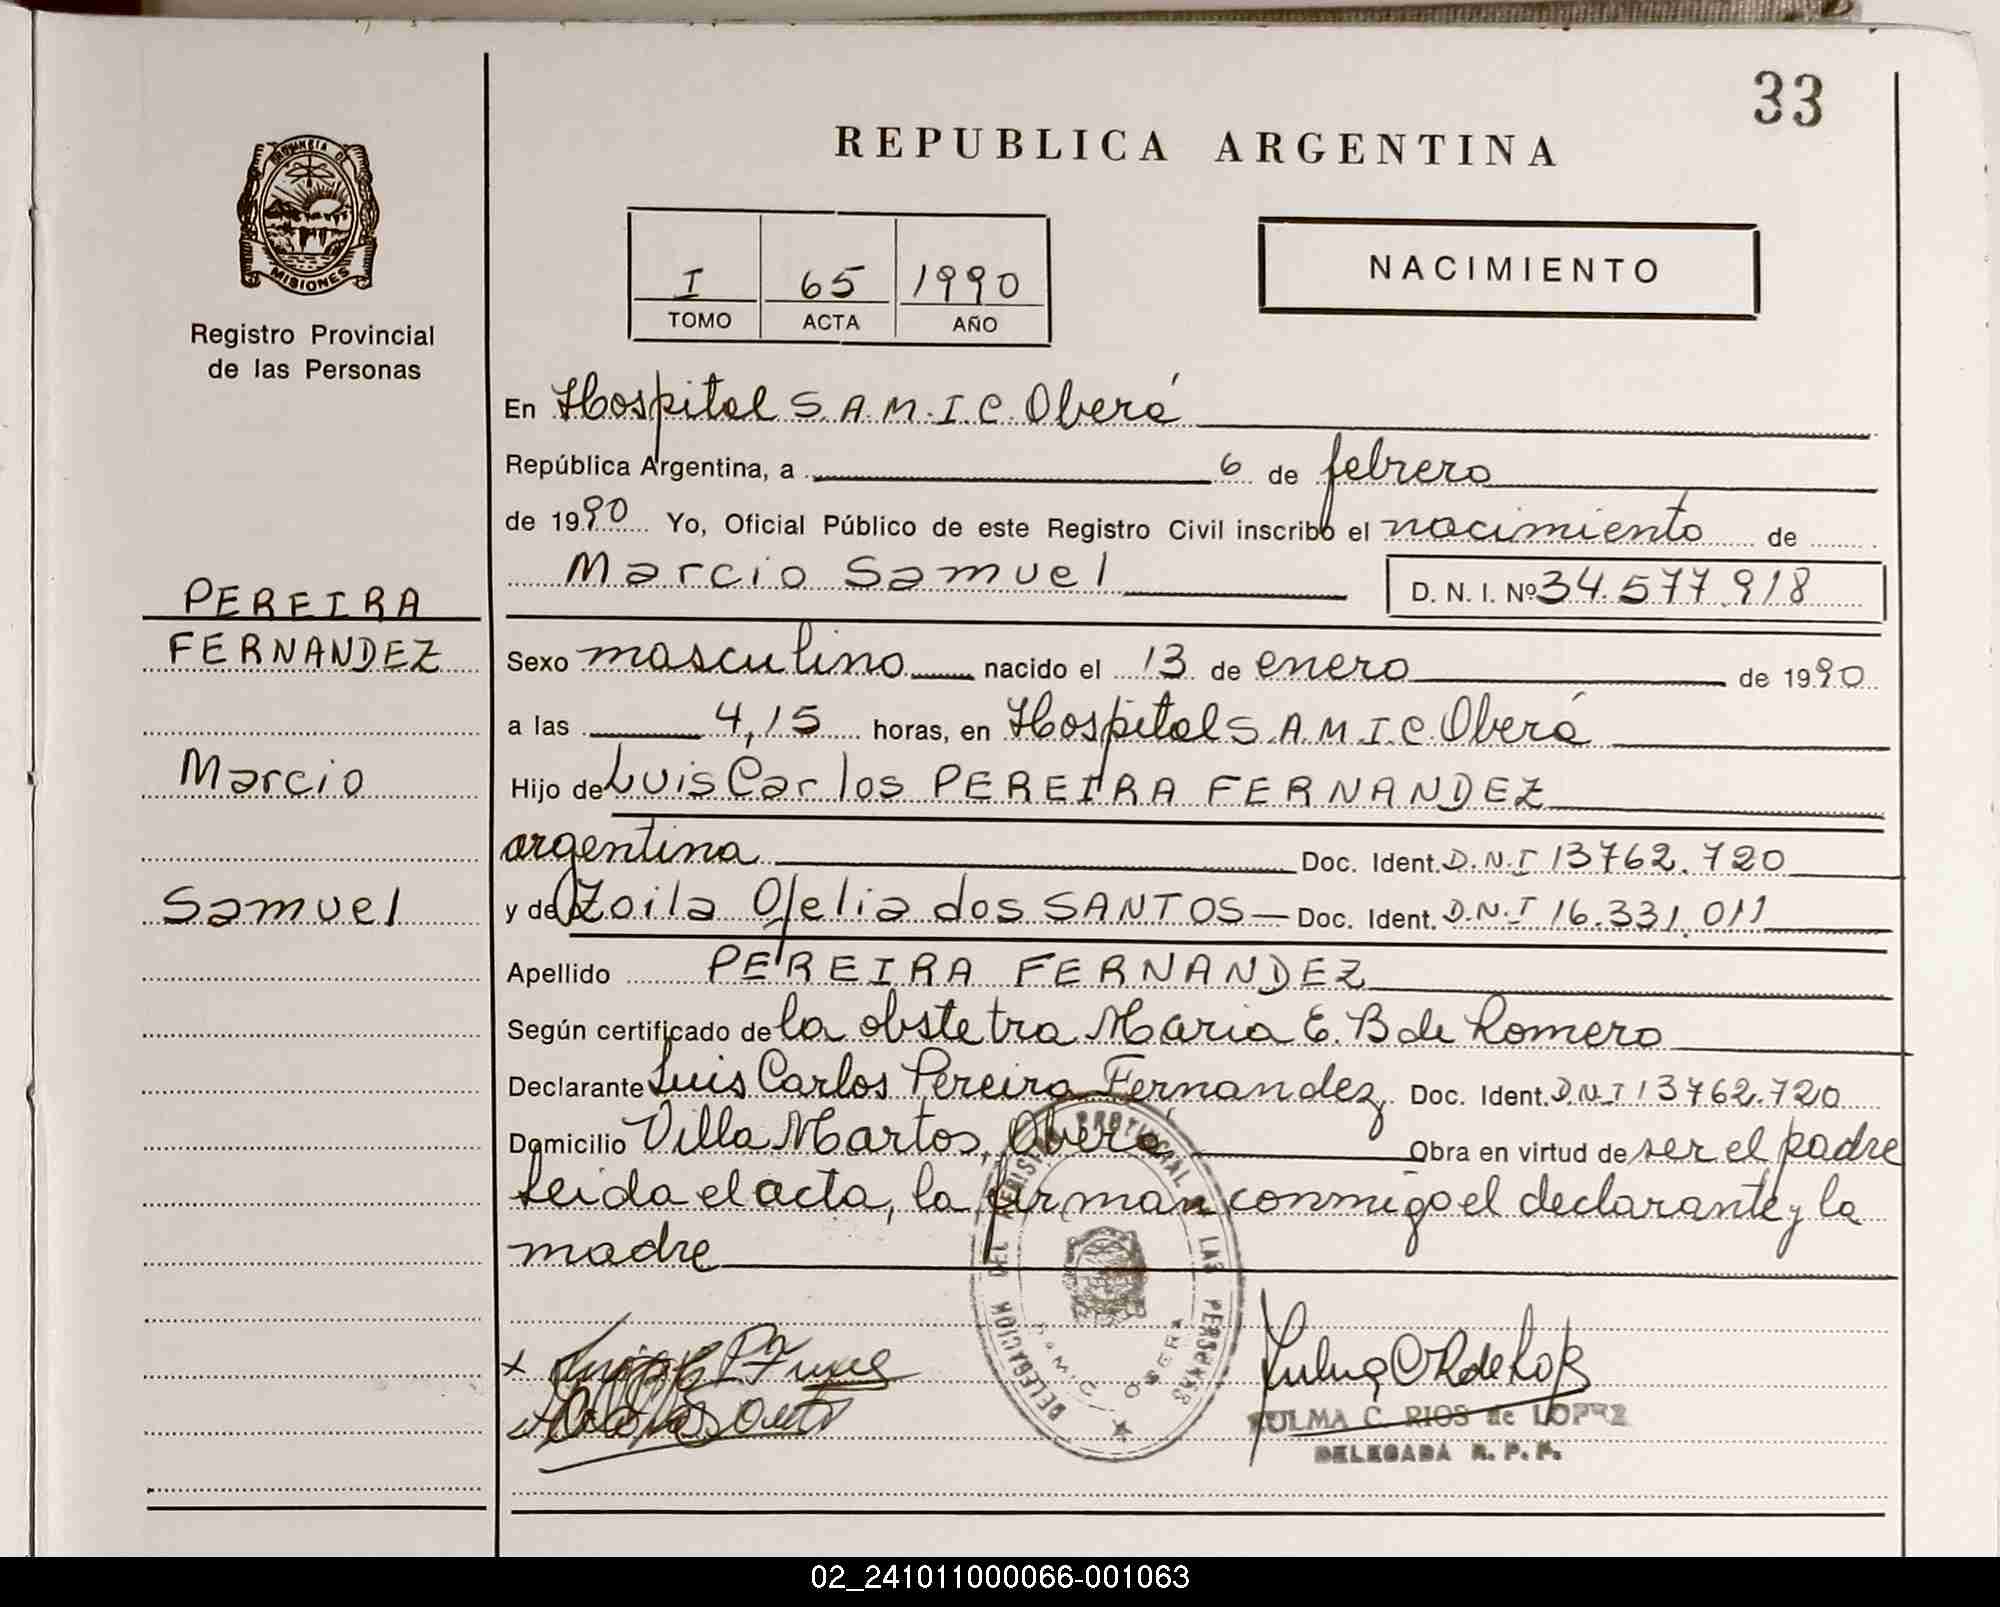 33
REPUBLICA ARGENTINA
PROVINCIA DE
MISIONES
Registro Provincial
de las Personas
I 65 1990
TOMO ACTA AÑO
NACIMIENTO
En Hospital S.A.M.I.C. Oberá
República Argentina, a 6 de febrero
de 1990 Yo, Oficial Público de este Registro Civil inscribo el nacimiento de
Marcio Samuel D. N. I. Nº 34.577.918
PEREIRA
FERNANDEZ
Marcio
Samuel
Sexo masculino nacido el 13 de enero de 1990
a las 4,15 horas, en Hospital S.A.M.I.C. Oberá
Hijo de Luis Carlos PEREIRA FERNANDEZ
argentina Doc. Ident. D.N.I 13762.720
y de Zoila Ofelia dos SANTOS — Doc. Ident. D.N.I 16.331.011
Apellido PEREIRA FERNANDEZ
Según certificado de la obstetra Maria E. B de Romero
Declarante Luis Carlos Pereira Fernandez Doc. Ident. D.N.I 13762.720
Domicilio Villa Martos, Oberá Obra en virtud de ser el padre
Leida el acta, la firman conmigo el declarante y la
madre
DELEGACION DEL REGISTRO PROVINCIAL DE LAS PERSONAS
OBERA
ZULMA C. RIOS de LOPEZ
DELEGADA R. P. P.
02_241011000066-001063